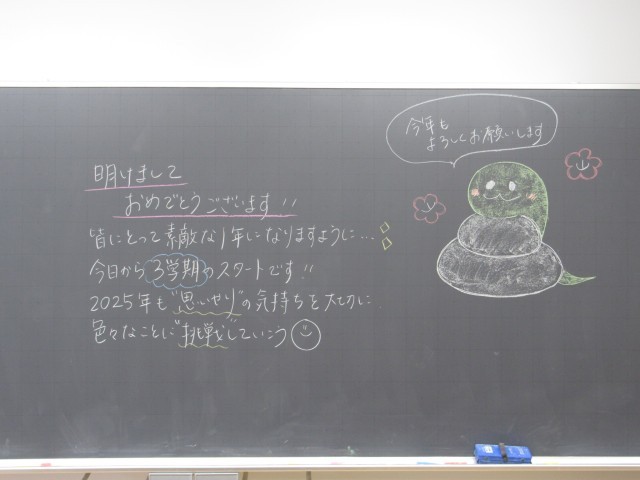 明けまして
おめでとうございます!!
皆にとって素敵な1年になりますように...
今日から3学期のスタートです!!
2025年も"思いやり"の気持ちを大切に
色々なことに"挑戦"していこう
今年も
よろしくお願いします